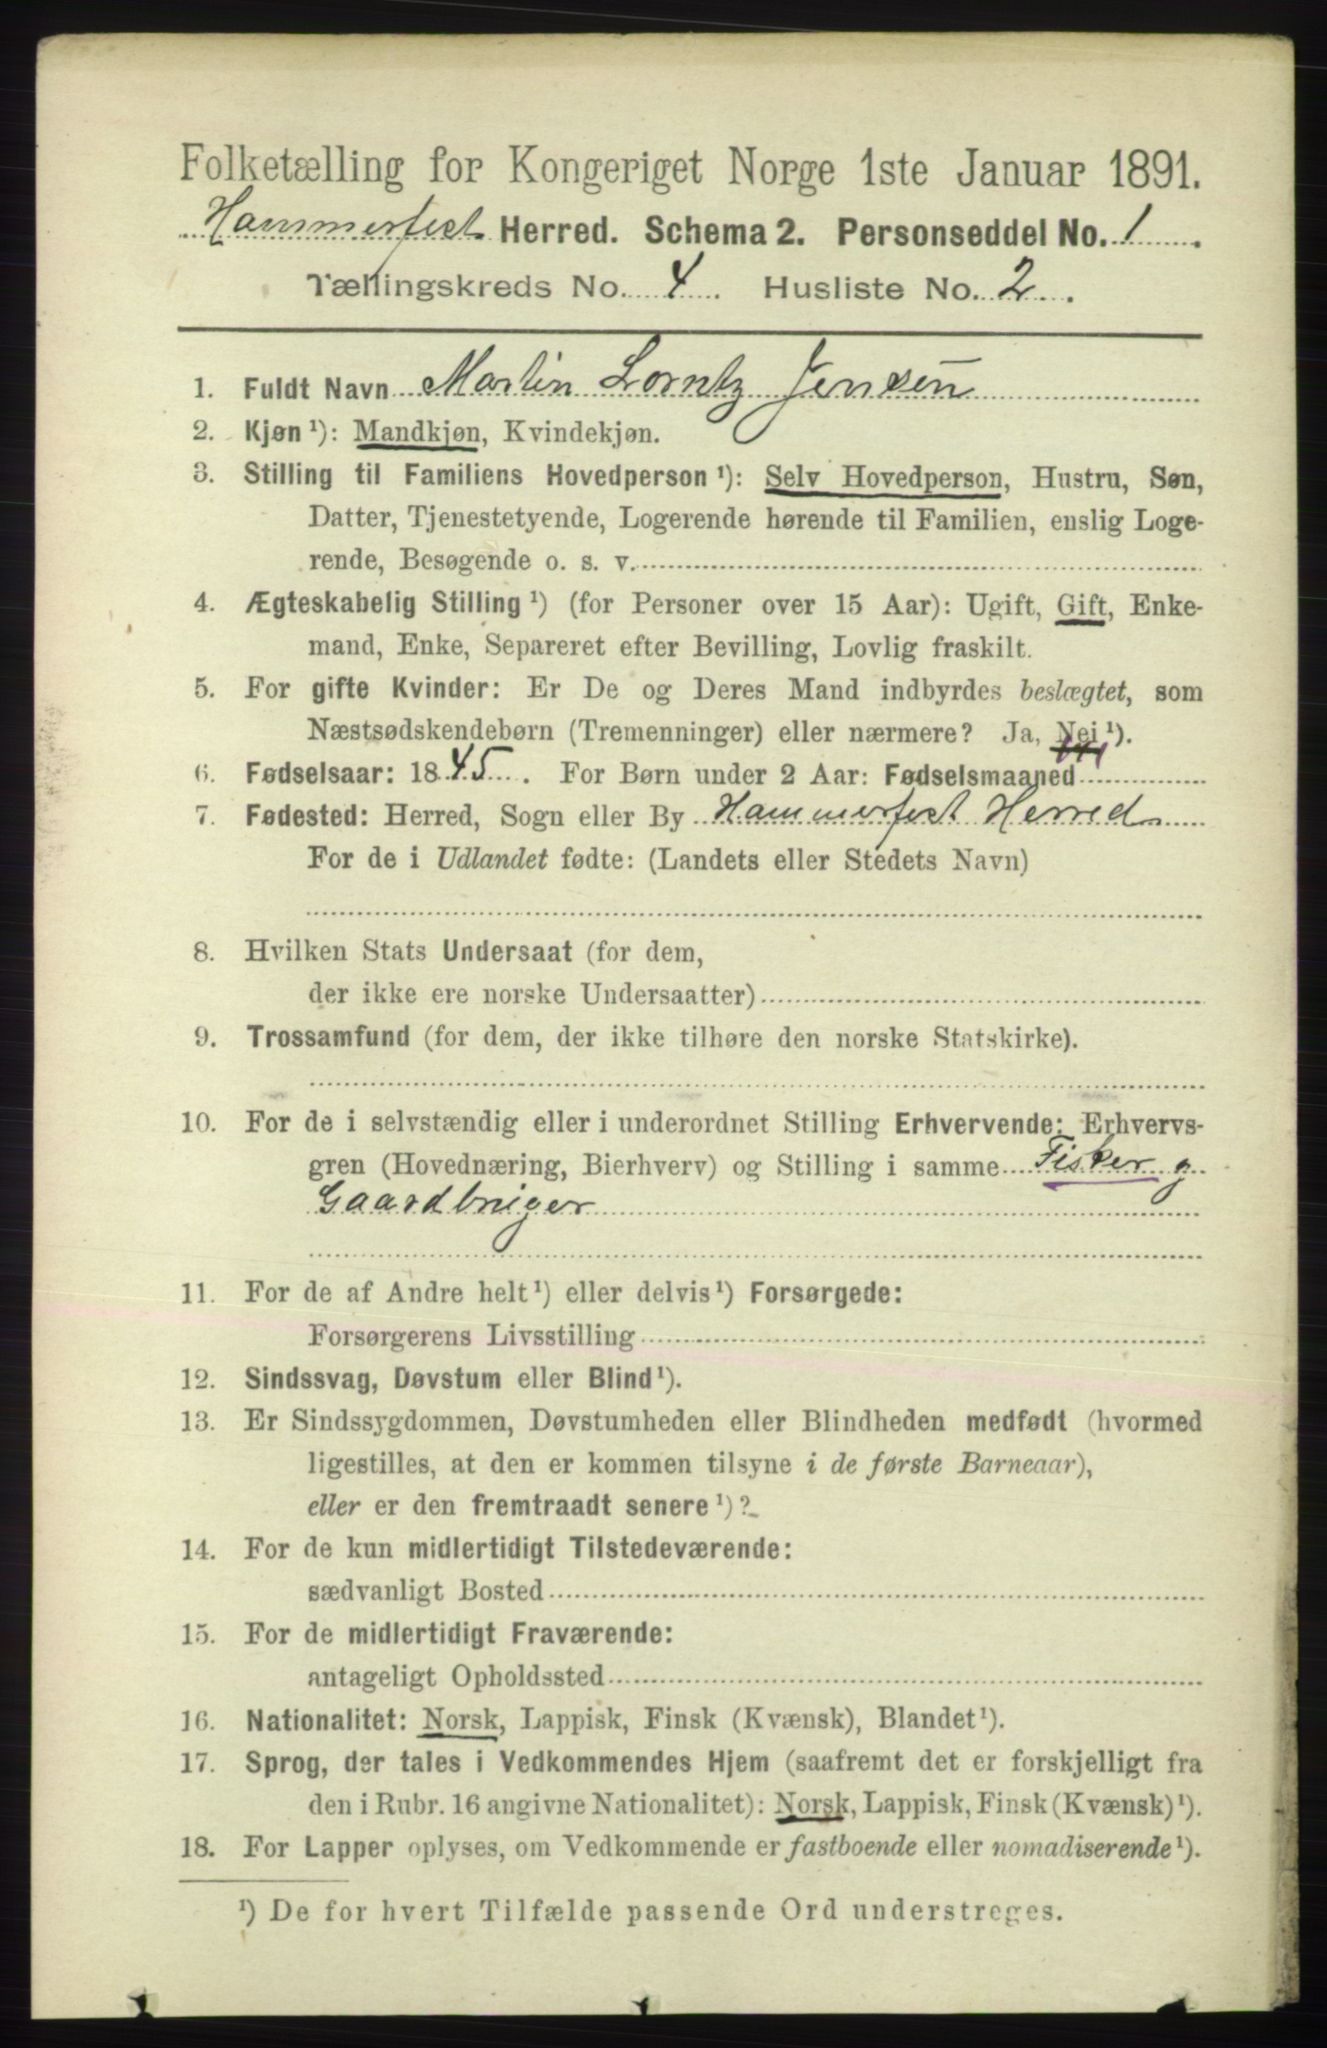 Folketælling for Kongeriget Norge 1ste Januar 1891.
Hammerfest Herred. Schema 2. Personseddel No. 1.
Tællingskreds No. 4. Husliste No. 2.
1. Fuldt Navn Martin Lorntz Jensen
2. Kjøn ¹): Mandkjøn, Kvindekjøn.
3. Stilling til Familiens Hovedperson ¹): Selv Hovedperson, Hustru, Søn,
Datter, Tjenestetyende, Logerende hørende til Familien, enslig Loge-
rende, Besøgende o. s. v.
4. Ægteskabelig Stilling ¹) (for Personer over 15 Aar): Ugift, Gift, Enke-
mand, Enke, Separeret efter Bevilling, Lovlig fraskilt.
5. For gifte Kvinder: Er De og Deres Mand indbyrdes beslægtet, som
Næstsødskendebørn (Tremenninger) eller nærmere? Ja, Nei ¹).
6. Fødselsaar: 1845. For Børn under 2 Aar: Fødselsmaaned
7. Fødested: Herred, Sogn eller By Hammerfest Herred
For de i Udlandet fødte: (Landets eller Stedets Navn)
8. Hvilken Stats Undersaat (for dem,
der ikke ere norske Undersaatter)
9. Trossamfund (for dem, der ikke tilhøre den norske Statskirke).
10. For de i selvstændig eller i underordnet Stilling Erhvervende: Erhvervs-
gren (Hovednæring, Bierhverv) og Stilling i samme Fisker og
Gaardbruger
11. For de af Andre helt ¹) eller delvis ¹) Forsørgede:
Forsørgerens Livsstilling
12. Sindssvag, Døvstum eller Blind ¹).
13. Er Sindssygdommen, Døvstumheden eller Blindheden medfødt (hvormed
ligestilles, at den er kommen tilsyne i de første Barneaar),
eller er den fremtraadt senere ¹)?
14. For de kun midlertidigt Tilstedeværende:
sædvanligt Bosted
15. For de midlertidigt Fraværende:
antageligt Opholdssted
16. Nationalitet: Norsk, Lappisk, Finsk (Kvænsk), Blandet ¹).
17. Sprog, der tales i Vedkommendes Hjem (saafremt det er forskjelligt fra
den i Rubr. 16 angivne Nationalitet): Norsk, Lappisk, Finsk (Kvænsk) ¹).
18. For Lapper oplyses, om Vedkommende er fastboende eller nomadiserende ¹).
¹) De for hvert Tilfælde passende Ord understreges.